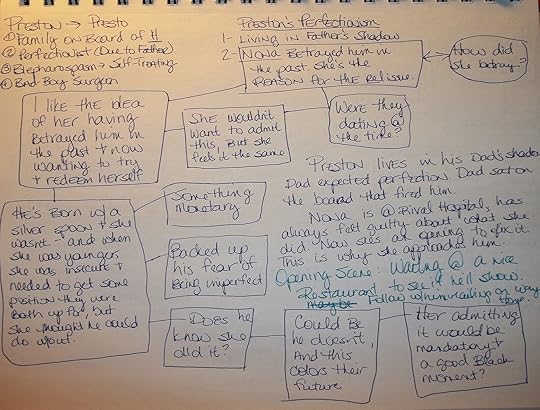 Preston → Presto
① Family on Board of H
② Perfectionist (Due to Father)
③ Blepharospasm → Self-Treating
④ Bad Boy Surgeon
Preston's Perfectionism
1- Living in Father's Shadow
2- Nona Betrayed him in
the past she's the
REASON for the Rel issue.
How did
she betray?
I like the idea
of her having
Betrayed him in
the past + now
wanting to try
+ redeem herself
She wouldn't
want to admit
this, But she
feels it the same
Were they
dating @
the time?
Preston lives in his Dad's shadow
Dad expected perfection. Dad sat on
the board that fired him.
Nona is @ Rival Hospital, has
always felt guilty about what she
did. Now sees an opening to fix it.
This is why she approaches him.
Opening Scene: Waiting @ a nice
Restaurant to see if he'll show.
maybe Follow when on way
home.
He's Born w/a
silver spoon + she
wasn't + and when
she was younger
she was insecure +
needed to get some
position they were
Both up for, but
she thought he could
do w/out.
Something
monetary
Backed up
his fear of
Being imperfect
Does he
know she
did it?
Could Be
he doesn't,
And this
colors their
future
Her admitting
it would be
mandatory +
a good Black
moment?